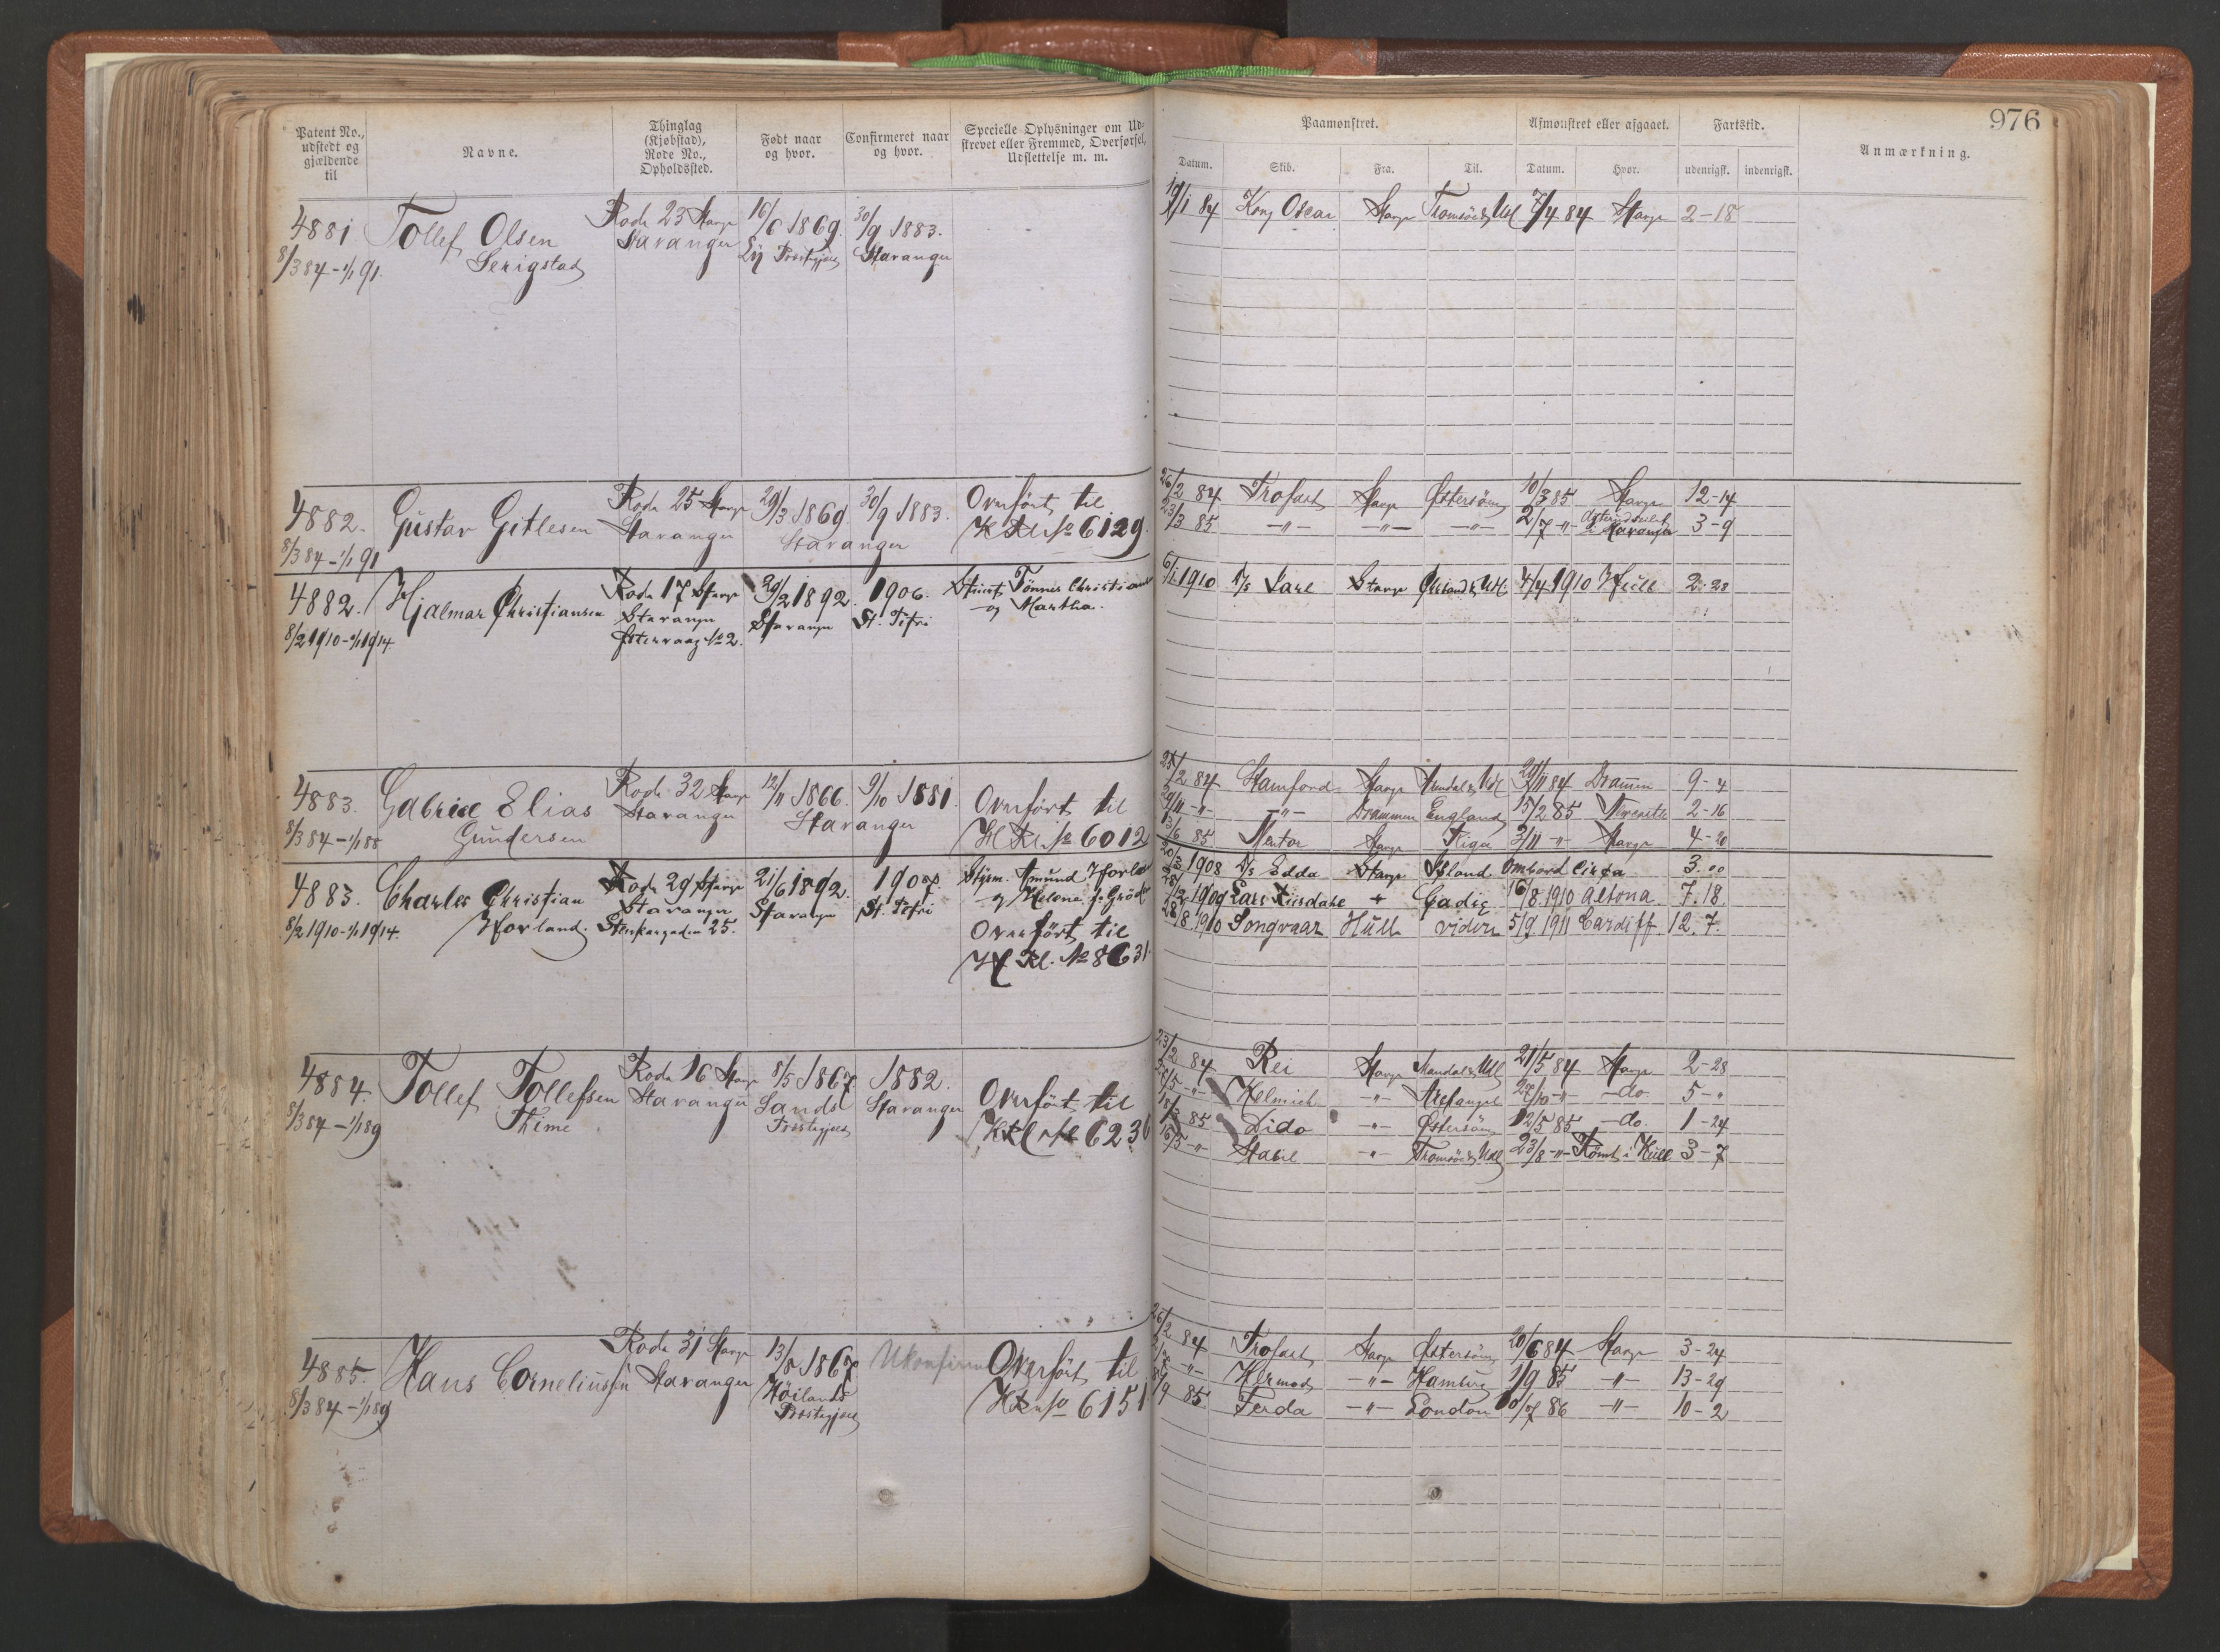 976
Patent No., udstedt og gjældende til
Navne.
Thinglag (Kjøbstad), Rode No., Opholdssted.
Født naar og hvor.
Confirmeret naar og hvor.
Specielle Oplysninger om Udstrevet eller Fremmed, Overførsel, Udslettelse m. m.
Paamønstret.
Afmønstret eller afgaaet.
Fartstid.
Anmærkning.
Datum. Skib. Fra. Til. Datum. Hvor. udenrigst. indenrigst.
4881 Tollef Olsen Rode 23 Stavgr 16/6 1869. 30/9 1883.
8/3 84 - 1/1 91. Serigstad Stavanger Ly Prestegjeld Stavanger
19/1 84 Kong Oscar Stavgr Tromsö & Udl 7/4 84 Stavgr 2-18
4882. Gustav Gitlesen Rode 25 Stavgr 29/3 1869. 30/9 1883. Overfört til
8/3 84 - 1/1 91 Stavanger Stavanger H Rl No 6129.
26/2 84 Trofast Stavgr Østersöen 10/3 85 Stavgr 12-14
23/3 85 -"- -"- -"- 2/7 -"- Stavanger 3-9
4882. Hjalmar Christiansen Rode 17 Stavgr 29/2 1892. 1906. Stuert Tönnes Christiansen
8/2 1910 - 1/1 1914 Stavanger Stavanger St. Petri og Martha.
Østervaag No 2.
6/1 1910 D/s Jarl Stavgr Chrsand & Udl. 4/4 1910 Hull 2.28
4883. Gabriel Elias Rode 32 Stavgr 12/11 1866. 9/10 1881. Overfört til
8/3 84 - 1/1 88 Gundersen Stavanger Stavanger H Rl. No 6012
25/2 84 Stamford Stavgr Mandal & Udl 29/11 84 Dramen 9-4
29/11 -"- -"- Drammen England 15/2 85 2-16
13/6 85 Mentor Stavgr Riga 3/11 -"- Stavgr 4-20
4883. Charles Christian Rode 29 Stavgr 21/6 1892. 1907. Styrm. Amund Horland
8/2 1910 - 1/1 1914. Horland. Stavanger Stavanger St. Petri og Helene
Stenkargaden 25.
Overfört til
H Rl. No 8631.
20/3 1908 D/s Edda Stavgr Island Ombord Cirka 3.00
1909 Lars Risdahl " Cadiz 16/8. 1910 Altona. 7.18.
28/8. 1910 Songvaar Hull videre 5/9. 1911 Cardiff. 12.7.
4884. Tollef Tollefsen Rode 16 Stavgr 8/5 1867. 1882. Overfört til
8/3 84 - 1/1 89 Thime Stavanger Sands Prestegjeld Stavanger H Rl No 6236
23/2 84 Rei Stavgr Mandal & Udl 21/5 84 Stavgr 2-28
Helmich -"- Arcangel -"- -do- 5-"
85 Dido -"- Østersöen 12/5 85 -do. 1-24
16/5 -"- Stabil -"- Tromsö & Udl 23/8 -"- Römt i Hull 3-7
4885. Hans Corneliussen Rode 31 Stavgr 13/8 1867 Ukonfirm Overfört til
8/3 84 - 1/1 89 Stavanger Höilands Prestegjeld H Rl No 6151
26/2 84 Trofast Stavgr Østersöen 20/6 84 Stavgr 3-24
-"- Hermod -"- Hamburg 1/9 85 -"- 13-29
85. Terda -"- London 10/7 86 -"- 10-2